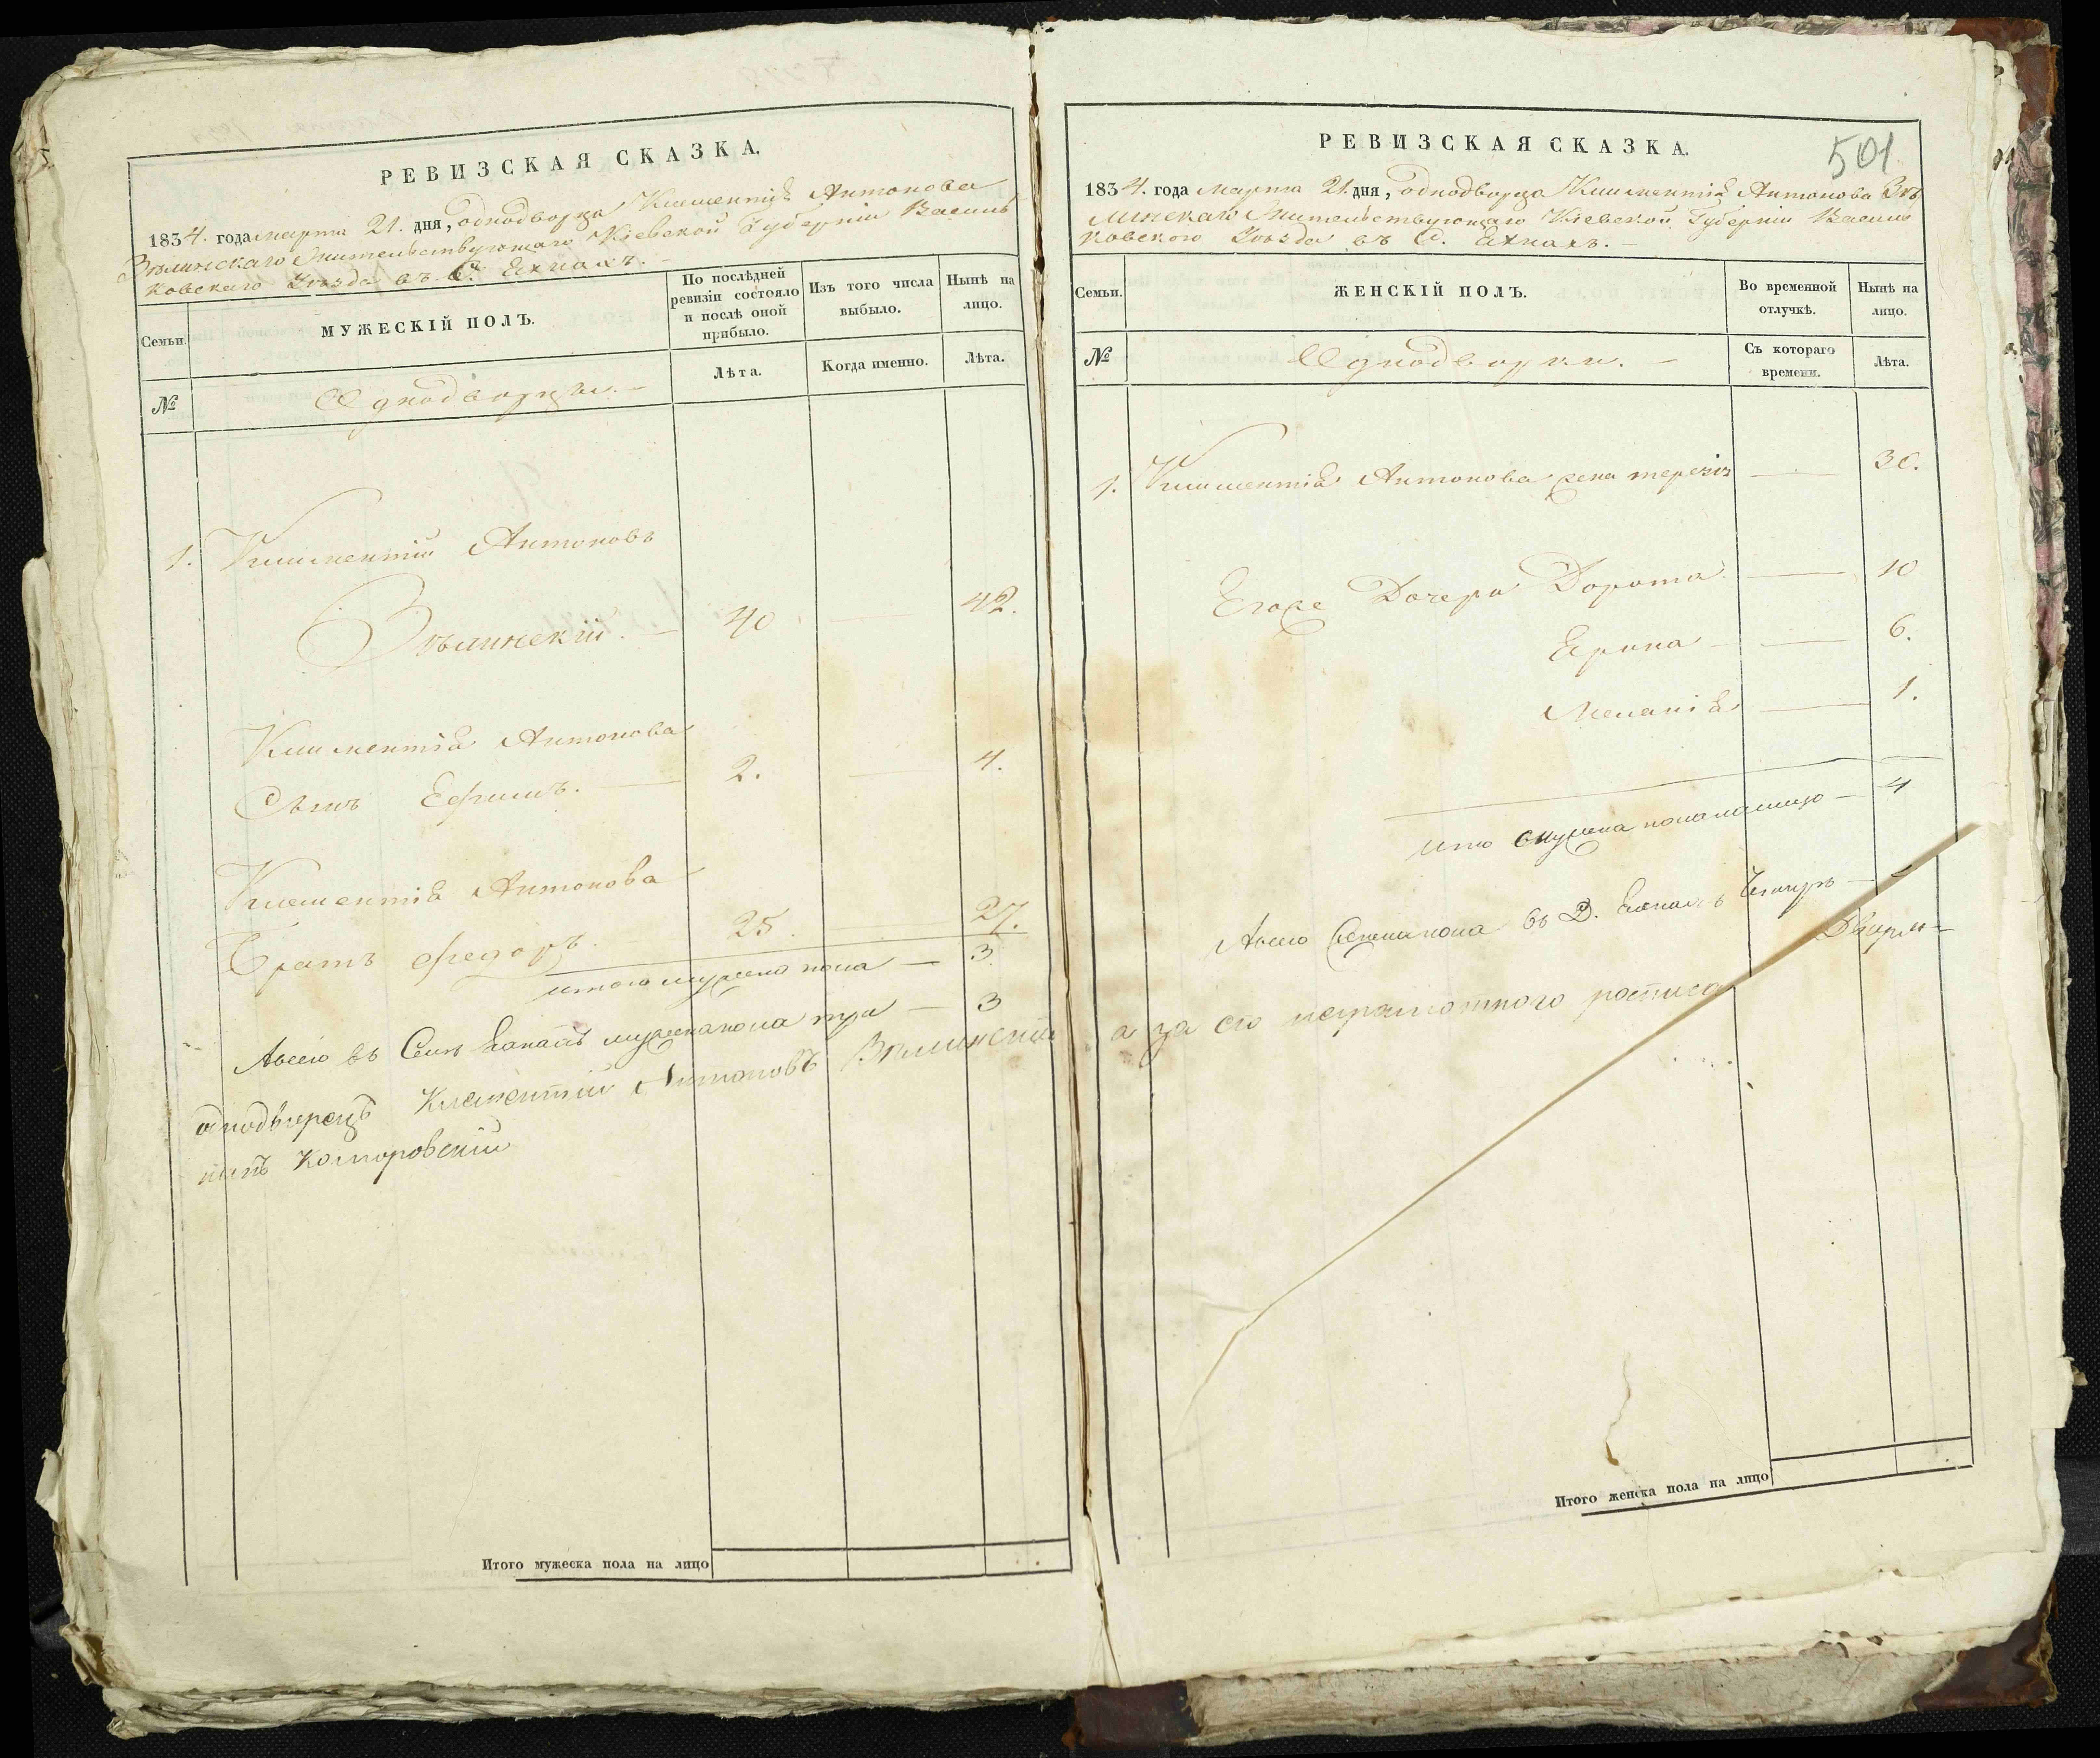 РЕВИЗСКАЯ СКАЗКА.
1834. года марта 21. дня, однодворца Климентія Антонова
Зѣлинскаго Жительствующаго Кіевской Губерніи Василь
ковскаго Уѣзда въ С. Ехнахъ.
Семьи.
МУЖЕСКІЙ ПОЛЪ.
По послѣдней ревизіи состояло и послѣ оной прибыло.
Изъ того числа выбыло.
Нынѣ на лицо.
№
Однодворцы.
Лѣта.
Когда именно.
Лѣта.
1. Климентій Антоновъ
Зѣлинскій. — 40 — 42.
Климентія Антонова
Сынъ Ефимъ. — 2. — 4.
Климентія Антонова
Братъ Федоръ. 25. 27.
итого мужеска пола — 3
Всего въ Селѣ мужеска пола три — 3
однодворецъ Климентій Антоновъ Зѣлинскій а за его неграмотного росписа
Комаровскій
Итого мужеска пола на лицо
РЕВИЗСКАЯ СКАЗКА.
501
1834. года марта 21. дня, однодворца Климентія Антонова Зѣ
линскаго Жительствующаго Кіевской Губерніи Василь
ковского Уѣзда въ С. Ехнахъ.
Семьи.
ЖЕНСКІЙ ПОЛЪ.
Во временной отлучкѣ.
Нынѣ на лицо.
№
Однодворки.
Съ котораго времени.
Лѣта.
1. Климентія Антонова жена терезія — 30.
Егоже Дочери Дорота — 10
— 6.
Меланія — 1.
— 4
Всего въ
Итого женска пола на лицо